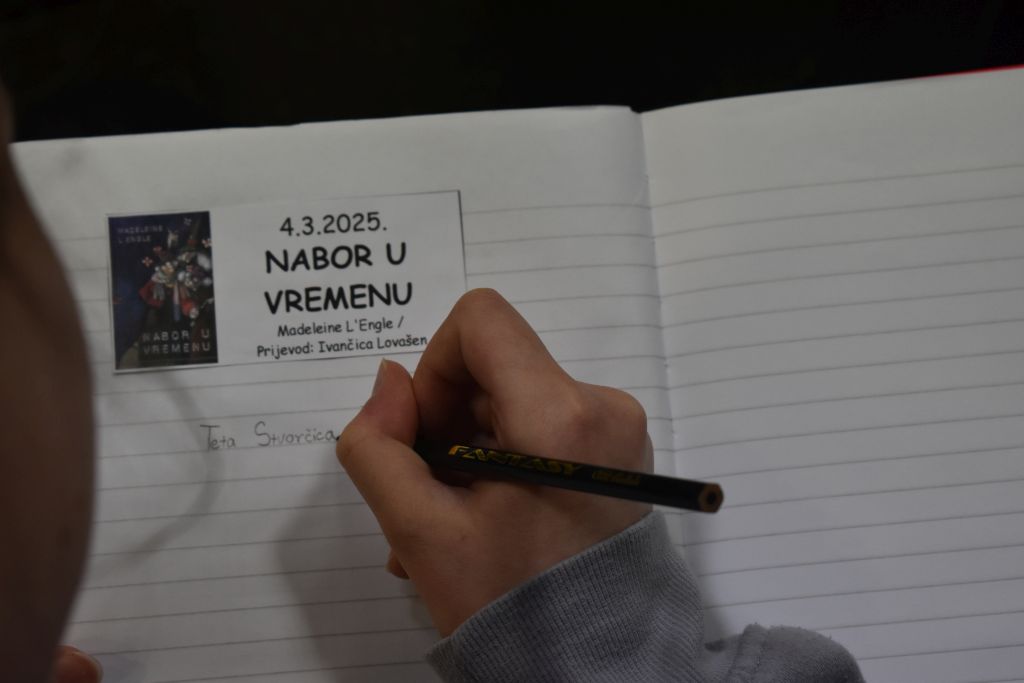 MADELEINE
L'ENGLE
NABOR U
VREMENU
4.3.2025.
NABOR U
VREMENU
Madeleine L'Engle /
Prijevod: Ivančica Lovašen
Teta Stvorčica
FANTASY